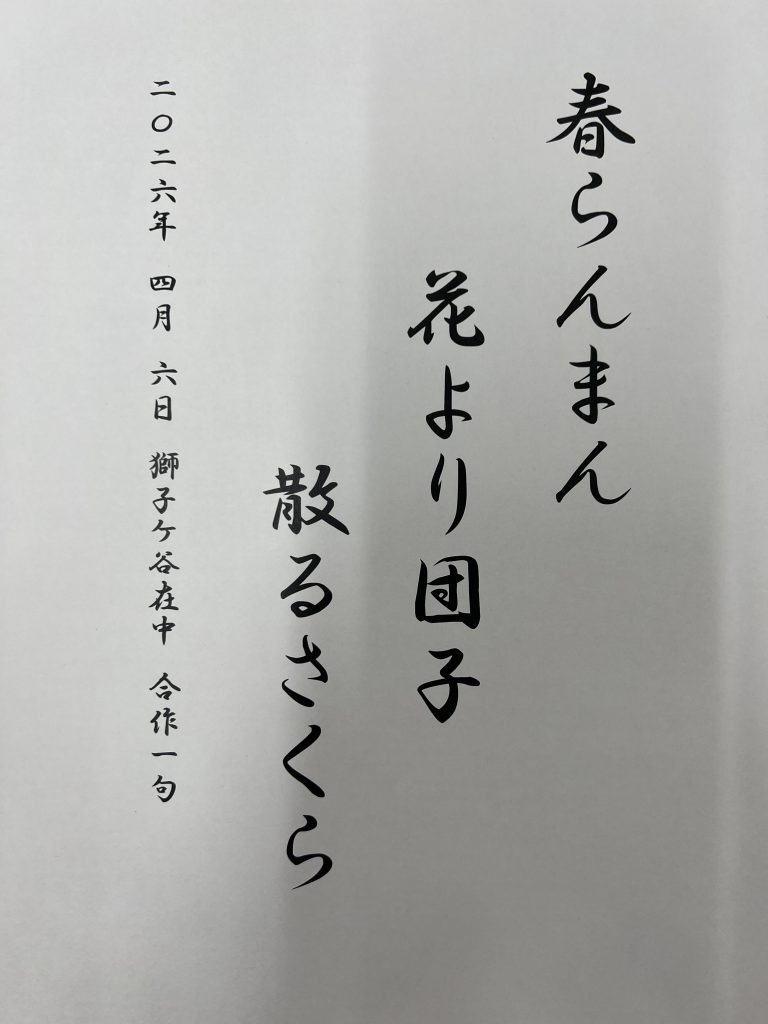 春らんまん
花より団子
散るさくら
二〇二六年 四月 六日 獅子ケ谷在中 合作一句